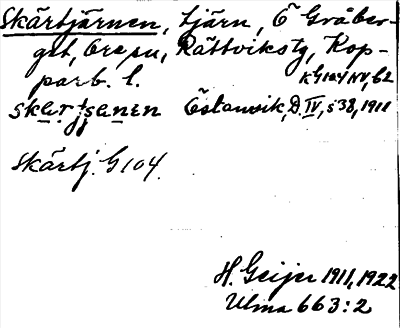 Skärtjärnen, tjärn, Ö Gråber-
get, Ore sn, Rättviks tg, Kop-
parb. l. KG104NV, b2
skærtjsænen Östanvik, D. IV, s 38, 1911
Skärtj. G 104.
H. Geijer 1911, 1922
Ulma 663:2